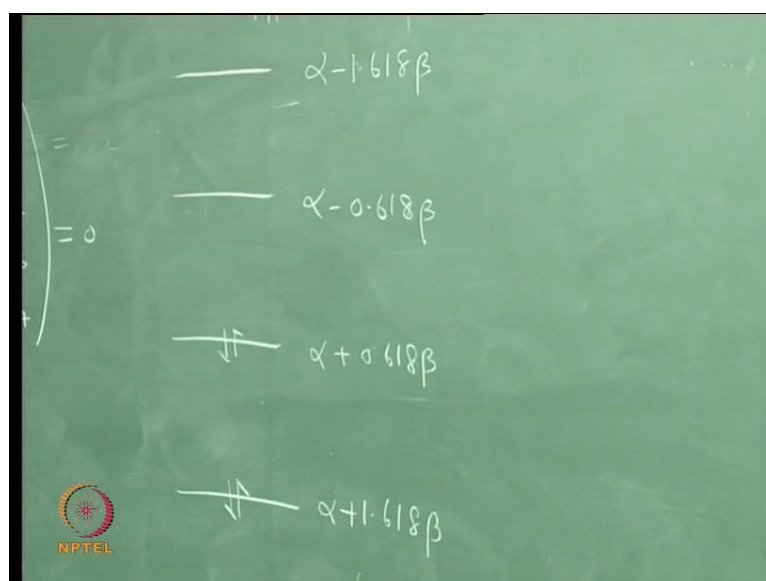 α-1.618β
α-0.618β
= 0
α+0.618β
α+1.618β
NPTEL